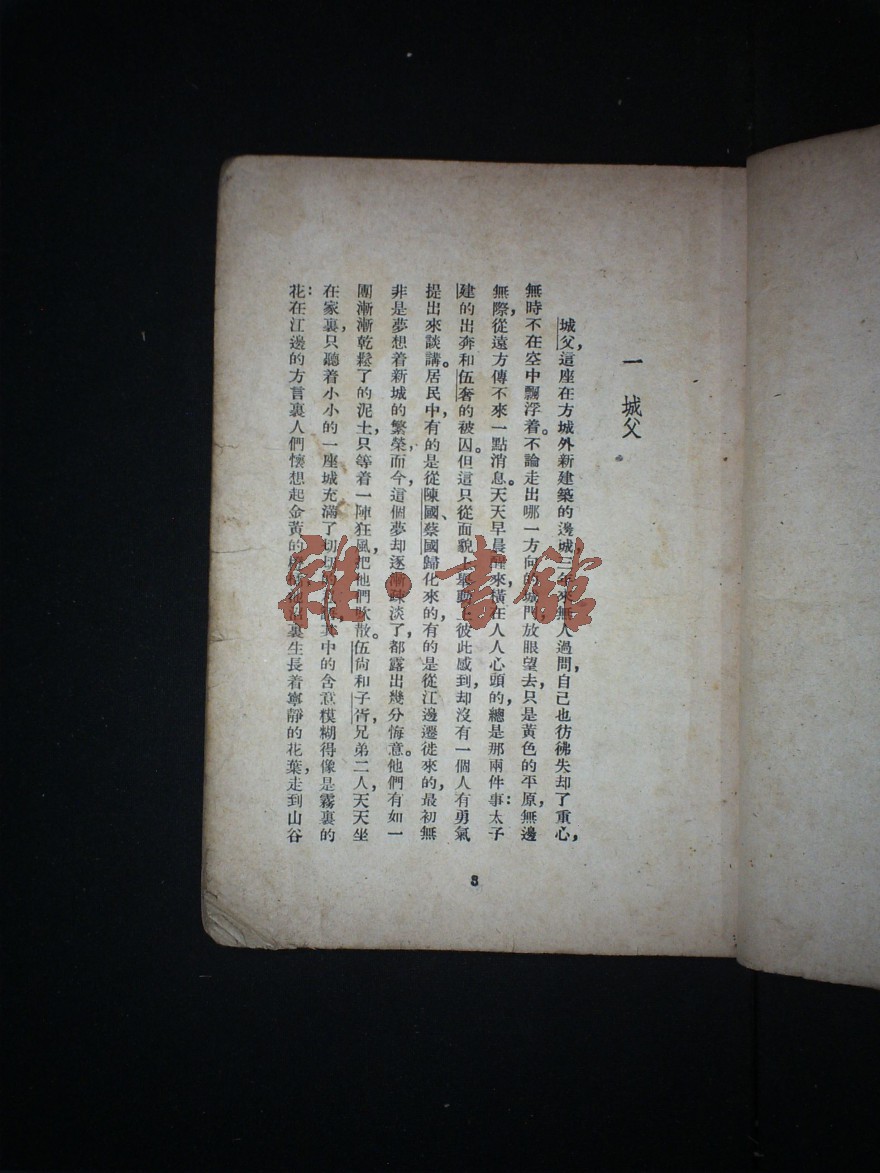 一　城父
城父，這座在方城外新建築的邊城，三年來無人過問，自己也彷彿失却了重心，
無時不在空中飄浮着。不論走出哪一方向的城門，放眼望去，只是黃色的平原，無邊
無際，從遠方傳不來一點消息。天天早晨醒來，橫在人人心頭的，總是那兩件事：太子
建的出奔和伍奢的被囚。但這只從面貌上舉動上彼此感到，却沒有一個人有勇氣
提出來談講。居民中，有的是從陳國、蔡國歸化來的，有的是從江邊遷徙來的，最初無
非是夢想着新城的繁榮，而今，這個夢却逐漸疎淡了，都露出幾分悔意。他們有如一
團漸漸乾鬆了的泥土，只等着一陣狂風，把他們吹散。伍尙和子胥，兄弟二人，天天坐
在家裏，只聽着小小的一座城充滿了切切中的含意模糊得像是霧裏的
花：在江邊的方言裏人們懷想起金黃的裏生長着寧靜的花葉，走到山谷
3
雜·書館